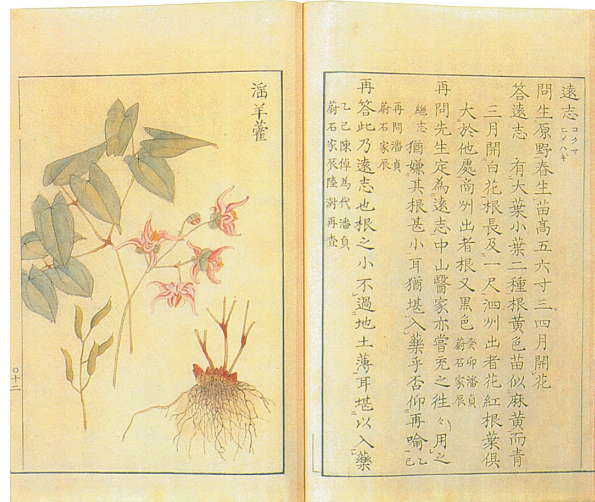 遠志 コクサ ヒメハギ
問生原野春生苗高五六寸三四月開花
答遠志 有大葉小葉二種根黄色苗似麻黄而青
三月開白花根長及一尺泗州出者花紅根葉俱
大於他處商州出者根又黒色 癸卯潘貞 蔚石家辰
再問先生定為遠志中山醫家亦嘗充之往々用之
繼志 猶嫌其根甚小耳猶堪入藥乎否仰再喻 乙巳
再問潘貞
蔚石家辰
再答此乃遠志也根之小不過地土薄耳堪以入藥
乙巳陳倬為代潘貞
蔚石家辰陸澍再査
淫羊藿
〇十二